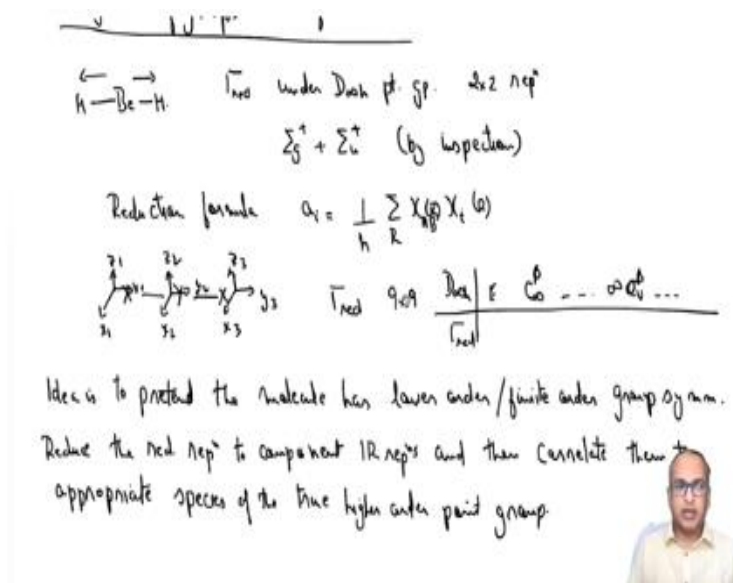 H—Be—H. Γred under D∞h pt. gp. 2x2 repⁿ
Σg⁺ + Σu⁺ (by inspection)
Reduction formula aᵢ = 1/h Σ_R
z1 z2 z3
x1 x2 x3 y3 Γred 9x9 D∞h E C∞ᶲ ---- ∞σv ---
Γred
Idea is to pretend the molecule has lower order/finite order group symm.
Reduce the red repⁿ to component IR repⁿs and then correlate them to
appropriate species of the true higher order point group.